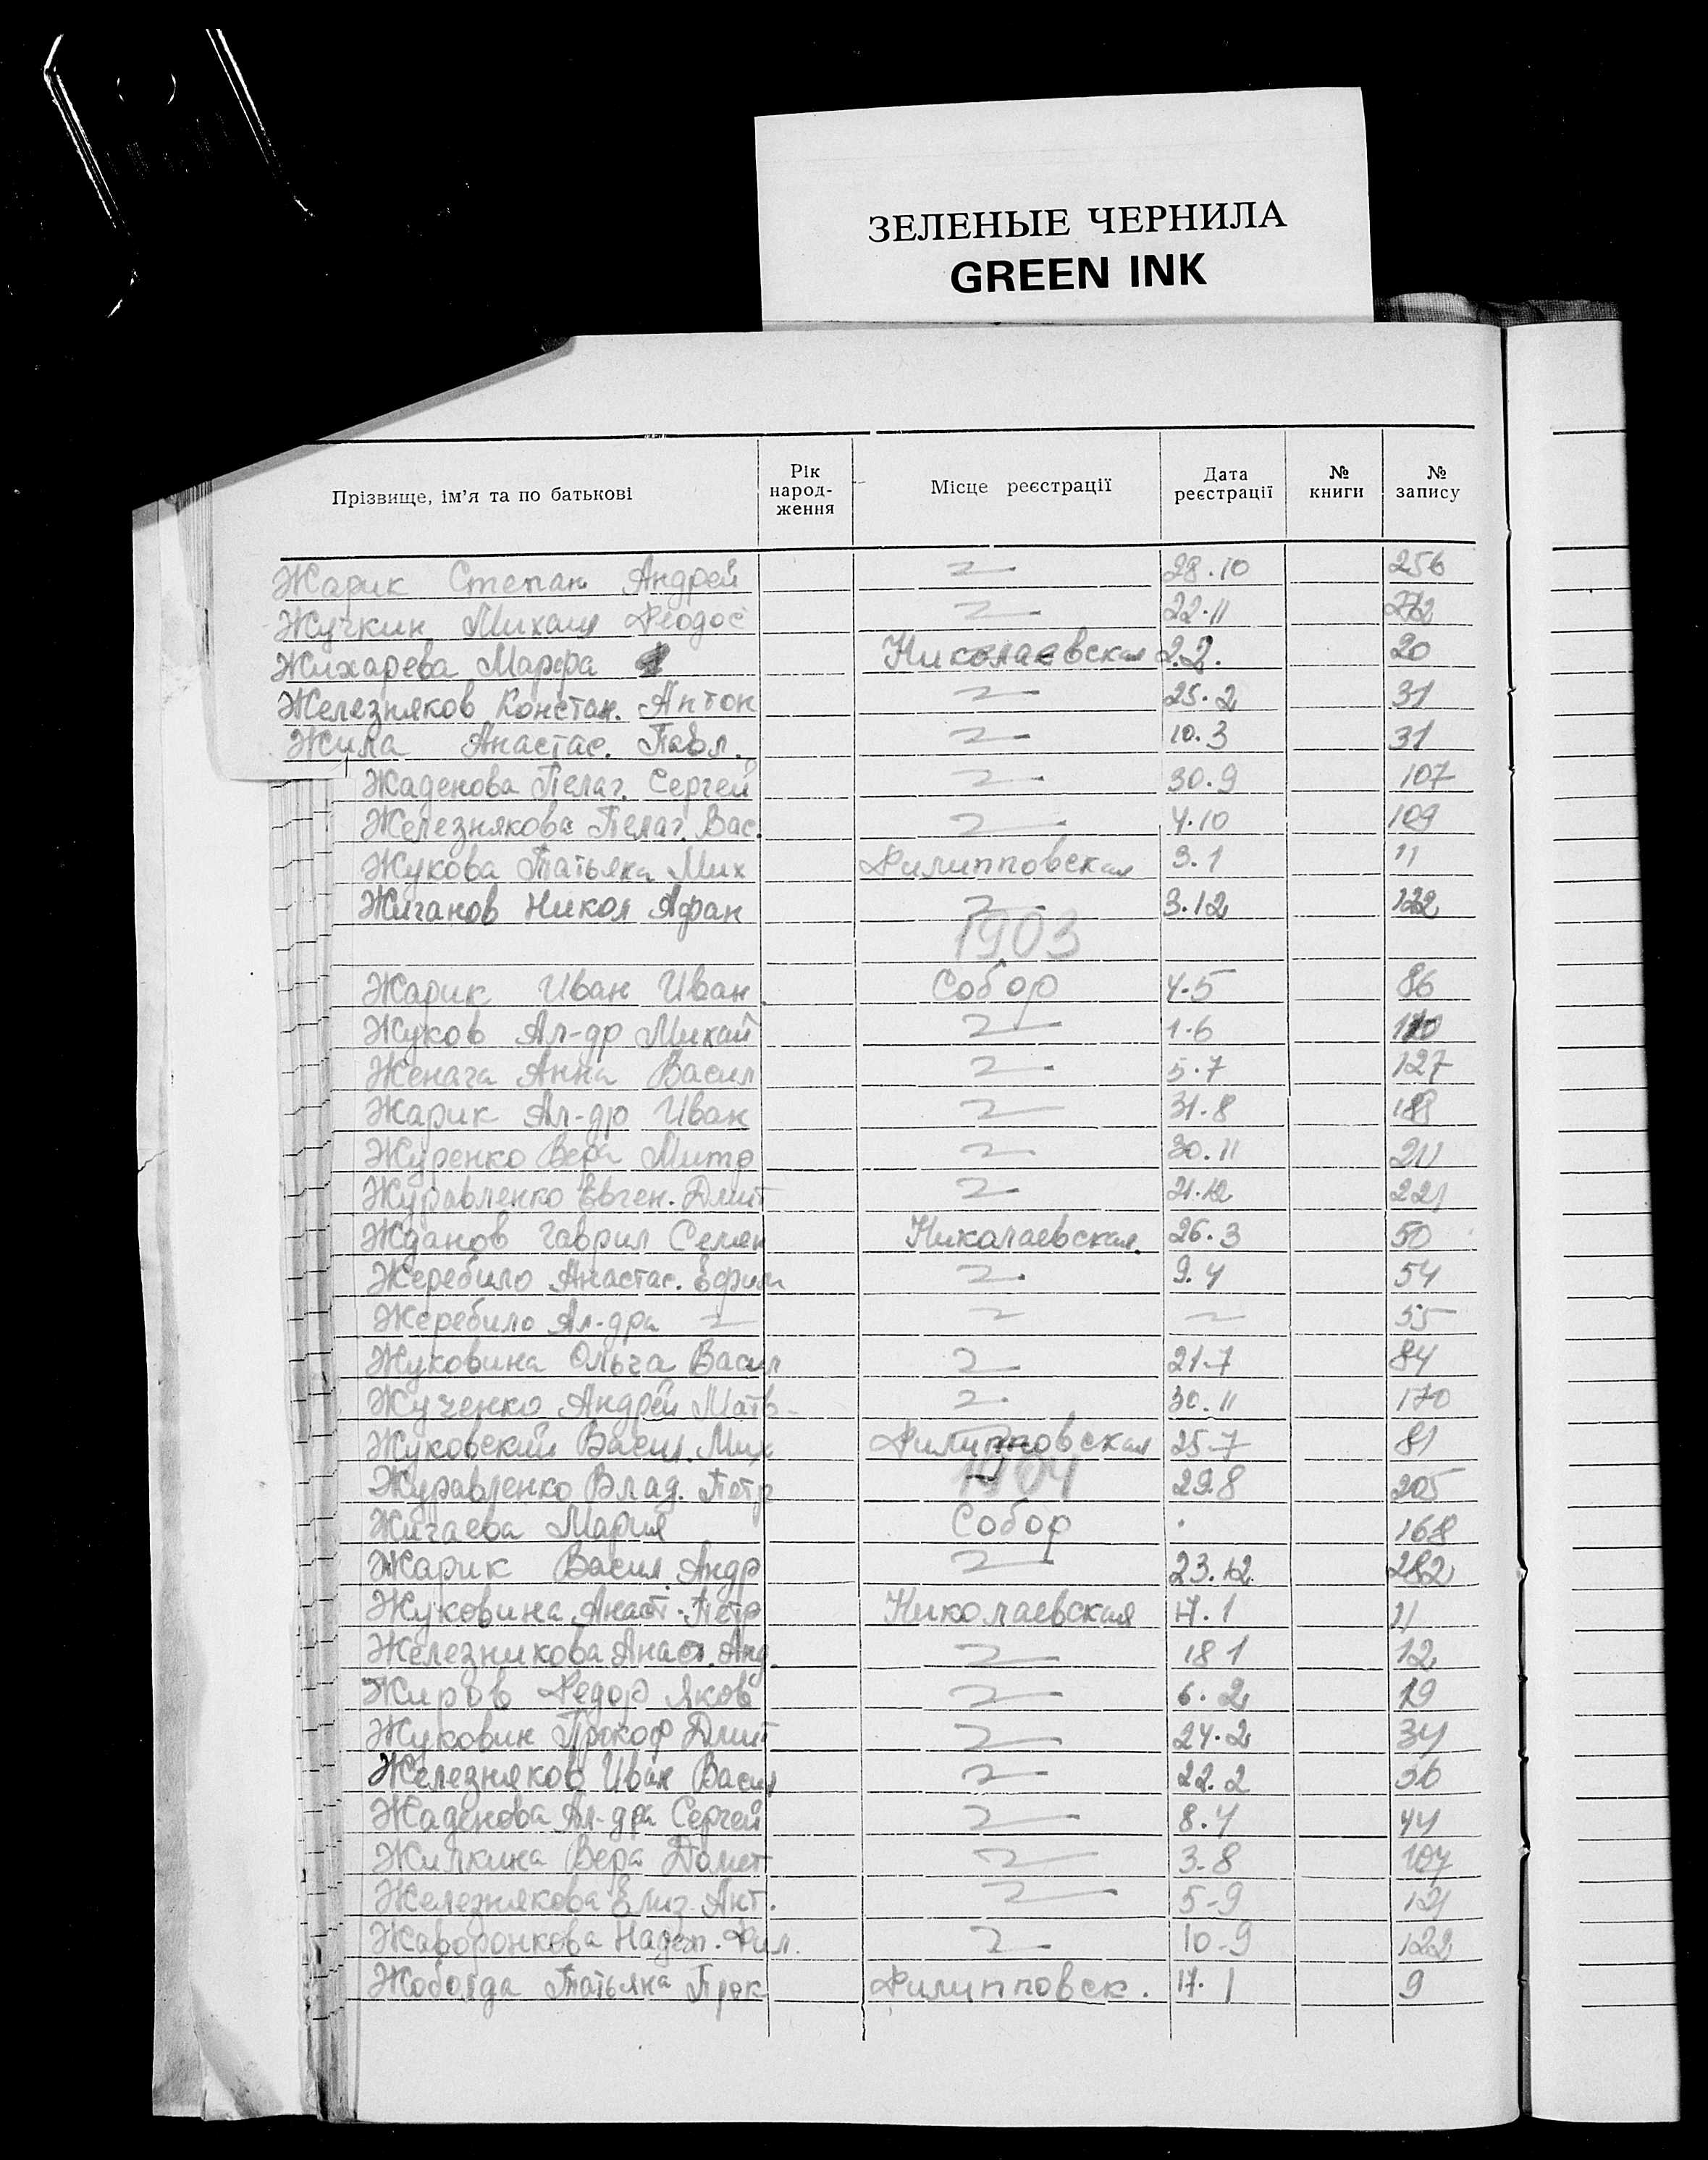 ЗЕЛЕНЫЕ ЧЕРНИЛА
GREEN INK
Прізвище, ім'я та по батькові Рік народ- ження Місце реєстрації Дата реєстрації № книги № запису
Жарик Степан Андрей 28.10 256
Жучкин Михаил Феодос 22.11
Жихарева Марфа Николаевская 2.2. 20
Железняков Констан. Антон 25.2 31
Жила Анастас. Павл. 10.3 31
Жаденова Пелаг. Сергей 30.9 107
Железнякова Пелаг. Вас. 4.10 109
Жукова Татьяна Мих Филипповская 3.1 11
Жиганов Никол Афан 3.12
1903
Жарик Иван Иван Собор 4.5 86
Жуков Ал-др Михай 1.6
Женага Анна Васил 5.7 127
Жарик Ал-др Иван 31.8
Журенко Вера Митр 30.11 211
Журавленко Евген. Дмит 21.12 221
Жданов Гаврил Семен Николаевская 26.3 50
Жеребило Анастас. Ефим 9.4 54
Жеребило Ал-дра 55
Жуковина Ольга Васил 21.7 84
Жученко Андрей Матв- 30.11 170
Жуковский Васил. Мих Филипповская 25-7 81
Журавленко Влад. Петр 1904 29.8 205
Жигаева Мария Собор 168
Жарик Васил Андр 23.12 282
Жуковина Анаст. Петр Николаевская 17.1 11
Железникова Анаст. Анд. 18 1 12
Жиров Федор Яков 6.2 19
Жуковин Прокоф Дмит 24.2 34
Железняков Иван Васил 22.2 36
Жаденова Ал-дра Сергей 8.4 44
Жилкина Вера Домет 3-8 107
Железнякова Елиз. Ант. 5-9 121
Жаворонкова Надеж. Фил. 10-9 122
Жобояда Татьяна Прок Филипповск. 17.1 9